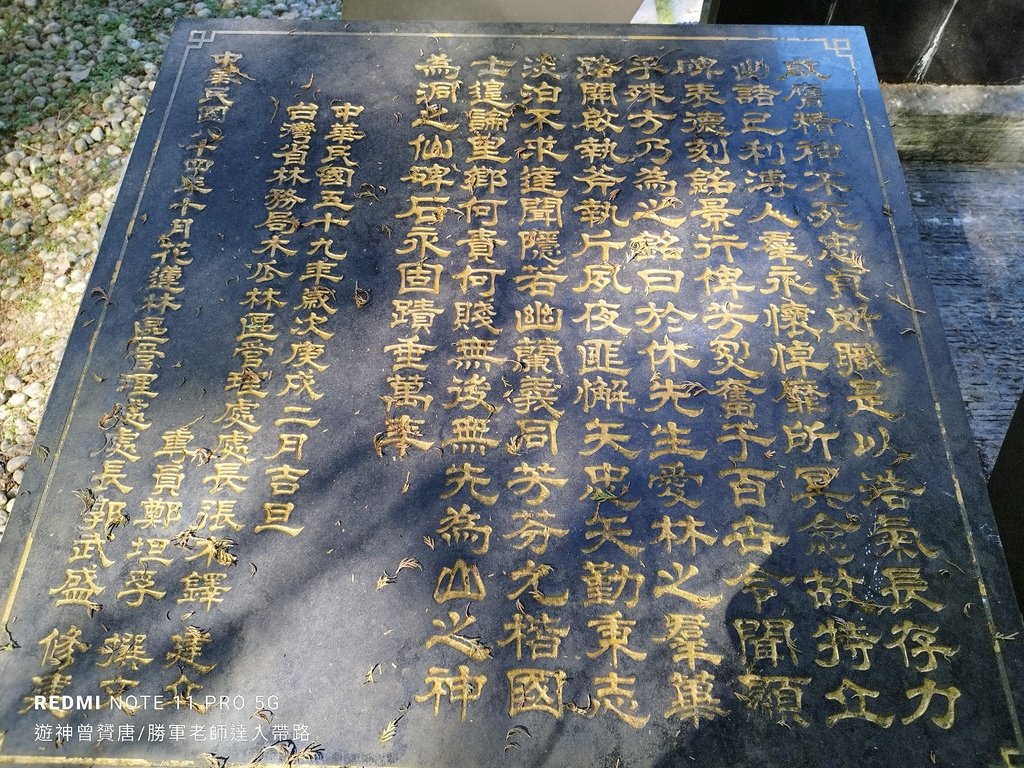 膺精神不死忠貞所職是以浩氣長存力
諸己利溥人羣永懷悼靡所冥念故特立
碑表德刻銘景行俾芳烈奮千百古令聞顯
乎殊方乃為之銘曰於休先生愛林之羣蓽
路開啟執斧執斤夙夜匪懈矢忠矢勤秉志
淡泊不求達聞隱若幽蘭義同芳芬允楷國
士遑論里鄉何貴何賤無後無先為山之神
為洞之仙碑石永固蹟垂萬年
中華民國五十九年歲次庚戌二月吉旦
台灣省林務局木瓜林區管理處處長張福鐸 建立
專員鄭坦孚 撰文
中華民國八十四年十月花蓮林區管理處處長郭武盛 修建
REDMI NOTE 11 PRO 5G
遊神曾贇唐/勝軍老師達人帶路